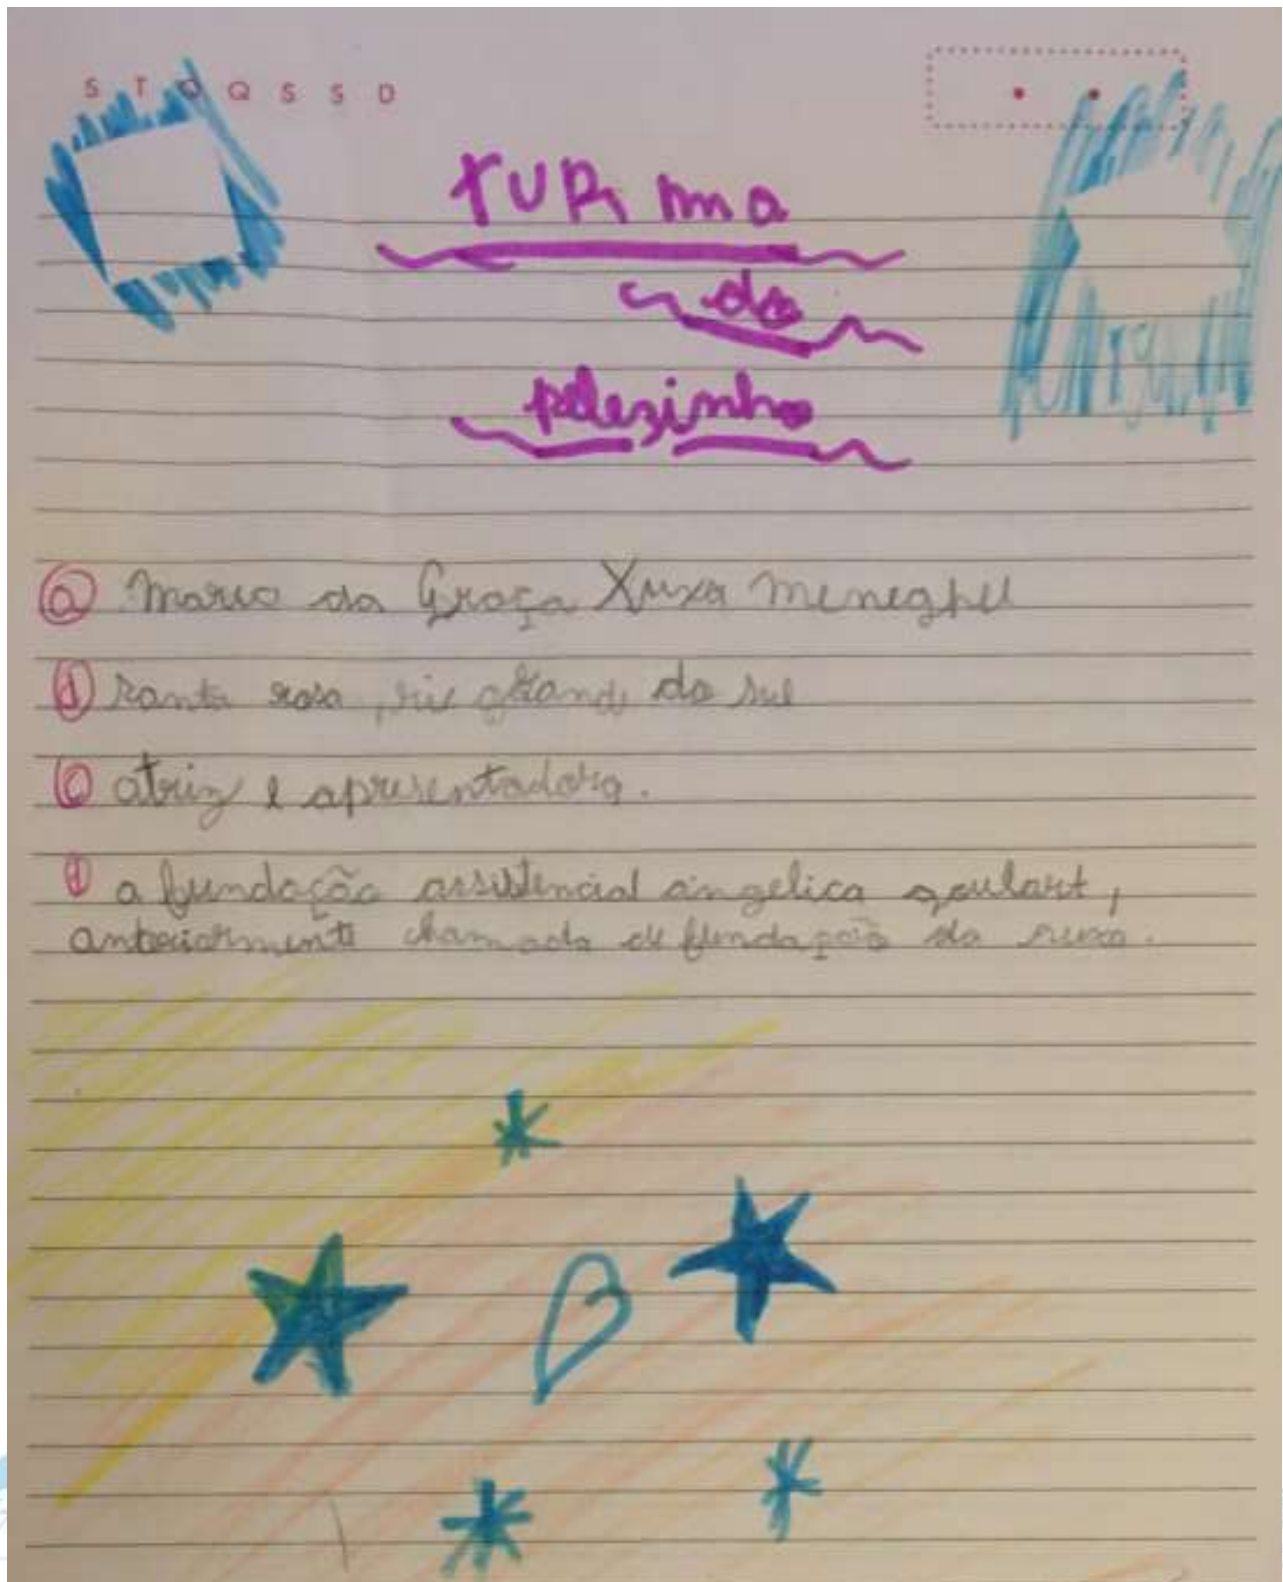 S T Q Q S S D
TURma
do
pelezinho
a maria da Graça Xuxa meneghel
santa rosa, rio grande do sul
atriz e apresentadora.
a fundação assistencial angelica goulart,
anteriormente chamada de fundação da xuxa.